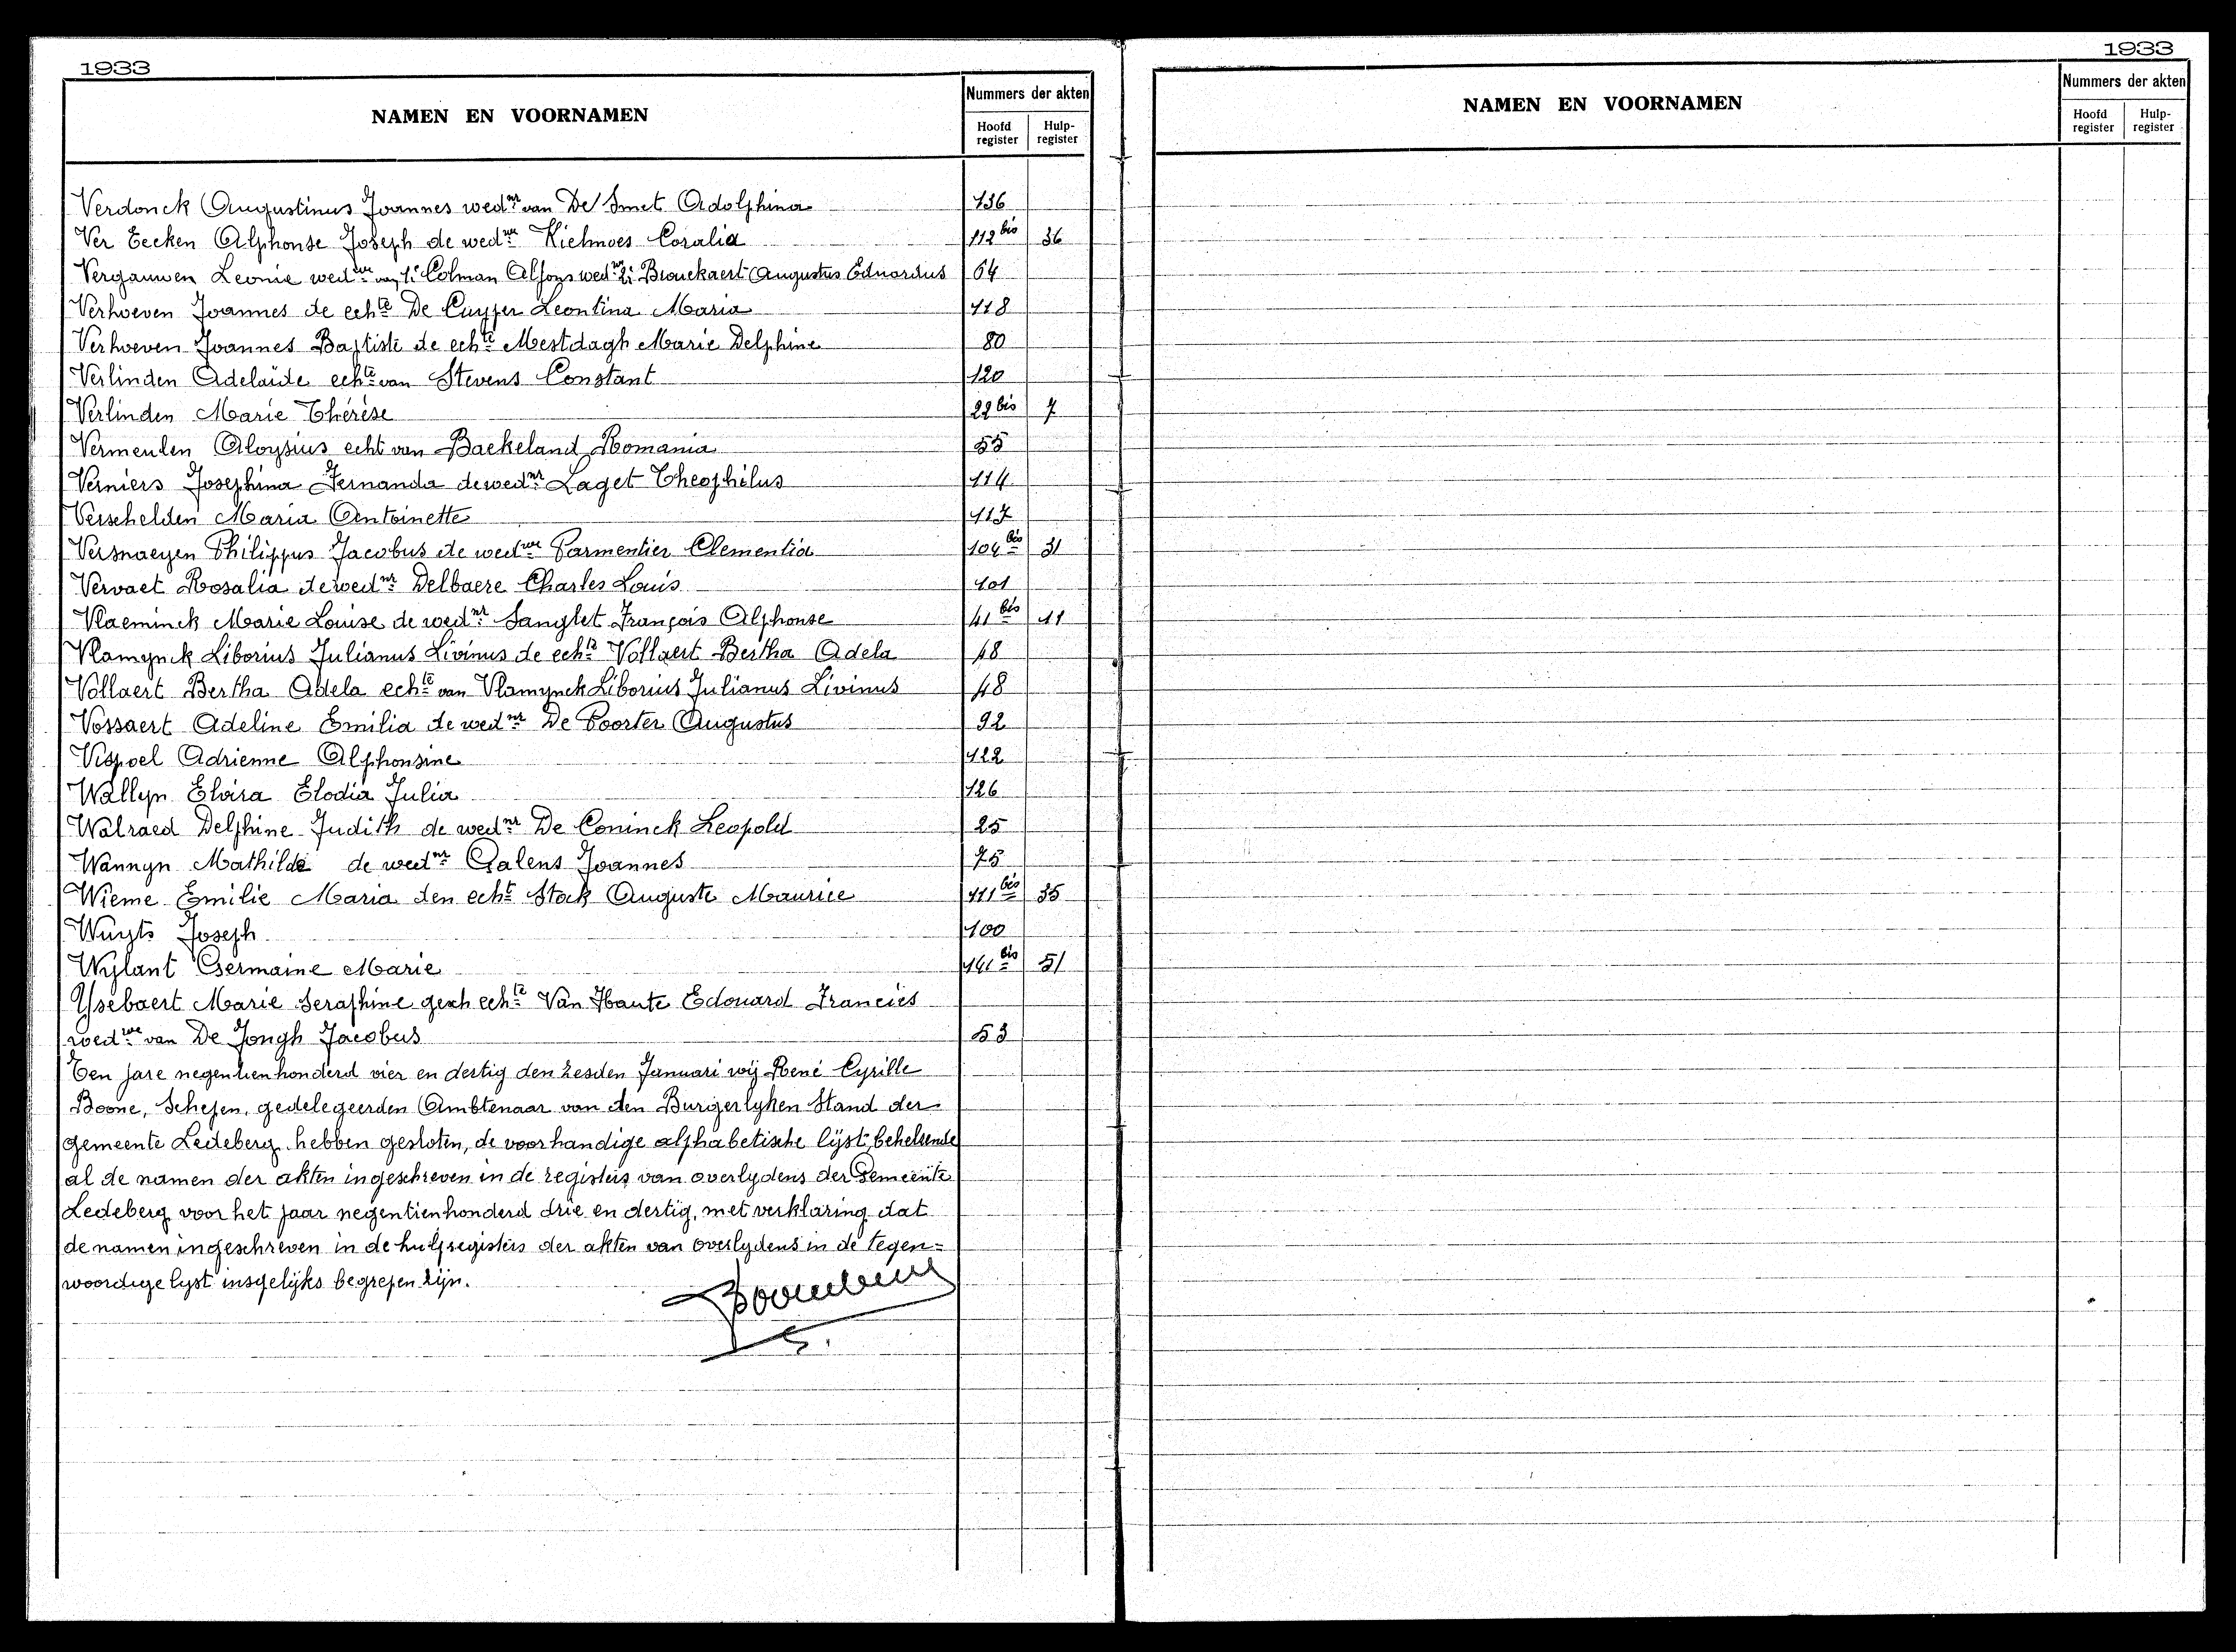 1933
NAMEN EN VOORNAMEN
Nummers der akten
Hoofd register
Hulp-register
Verdonck Augustinus Joannes wednr van De Smet Adolphina 136
Ver Eecken Alphonse Joseph de wedwe Kielmoes Coralia 112 bis 36
Vergauwen Leonie wedwe van 1e Colman Alfons wedwe 2e Brouckaert Augustus Eduardus 64
Verhoeven Joannes de echte De Cuyper Leontina Maria 118
Verhoeven Joannes Baptiste de echte Mestdagh Marie Delphine 80
Verlinden Adelaïde echte van Stevens Constant 120
Verlinden Marie Thérèse 22 bis 7
Vermeulen Aloysius echt van Baekeland Romania 55
Verniers Josephina Fernanda de wednr Laget Theophilus 114
Verschelden Maria Antoinette 117
Versnaeyen Philippus Jacobus de wedwe Parmentier Clementia 104 bis 31
Vervaet Rosalia de wednr Delbaere Charles Louis 101
Vlaeminck Marie Louise de wednr Sanglet François Alphonse 41 bis 11
Vlamynck Liborius Julianus Livinus de echte Vollaert Bertha Adela 48
Vollaert Bertha Adela echte van Vlamynck Liborius Julianus Livinus 48
Vossaert Adeline Emilia de wednr De Poorter Augustus 92
Vispoel Adrienne Alphonsine 122
Wallyn Elvira Elodia Julia 126
Walraed Delphine Judith de wednr De Coninck Leopold 25
Wannyn Mathilde de wednr Galens Joannes 75
Wieme Emilie Maria den echt Stock Auguste Maurice 111 bis 35
Wuyts Joseph 100
Wylant Germaine Marie 141 bis 51
Ysebaert Marie Seraphine gesch echte Van Haute Edouard Francies
wedwe van De Jongh Jacobus 53
Ten jare negentienhonderd vier en dertig den zesden Januari wij René Cyrille
Boone, Schepen, gedelegeerden Ambtenaar van den Burgerlyken Stand der
gemeente Ledeberg hebben gesloten, de voorhandige alphabetische lijst behelsende
al de namen der akten ingeschreven in de registers van overlydens der Gemeente
Ledeberg voor het jaar negentienhonderd drie en dertig, met verklaring dat
de namen ingeschreven in de hulpregisters der akten van overlydens in de tegen=
woordige lyst insgelijks begrepen zijn.
1933
NAMEN EN VOORNAMEN
Nummers der akten
Hoofd register
Hulp-register